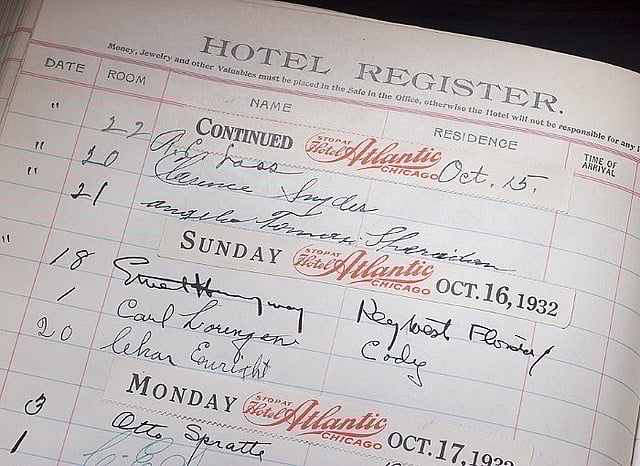 HOTEL REGISTER.
Money, Jewelry and other Valuables must be placed in the Safe in the Office, otherwise the Hotel will not be responsible for any
DATE ROOM NAME RESIDENCE TIME OF ARRIVAL
CONTINUED STOP AT Hotel Atlantic CHICAGO Oct. 15.
" 22 Lass
" 20 Clarence Snyder
" 21 Angelo Sheridan
SUNDAY STOP AT Hotel Atlantic CHICAGO OCT. 16, 1932
" 18 Key West Florida
1 Carl Lorenzen Cody
20 Enright
MONDAY STOP AT Hotel Atlantic CHICAGO OCT. 17, 1932
3 Otto Spratte
1